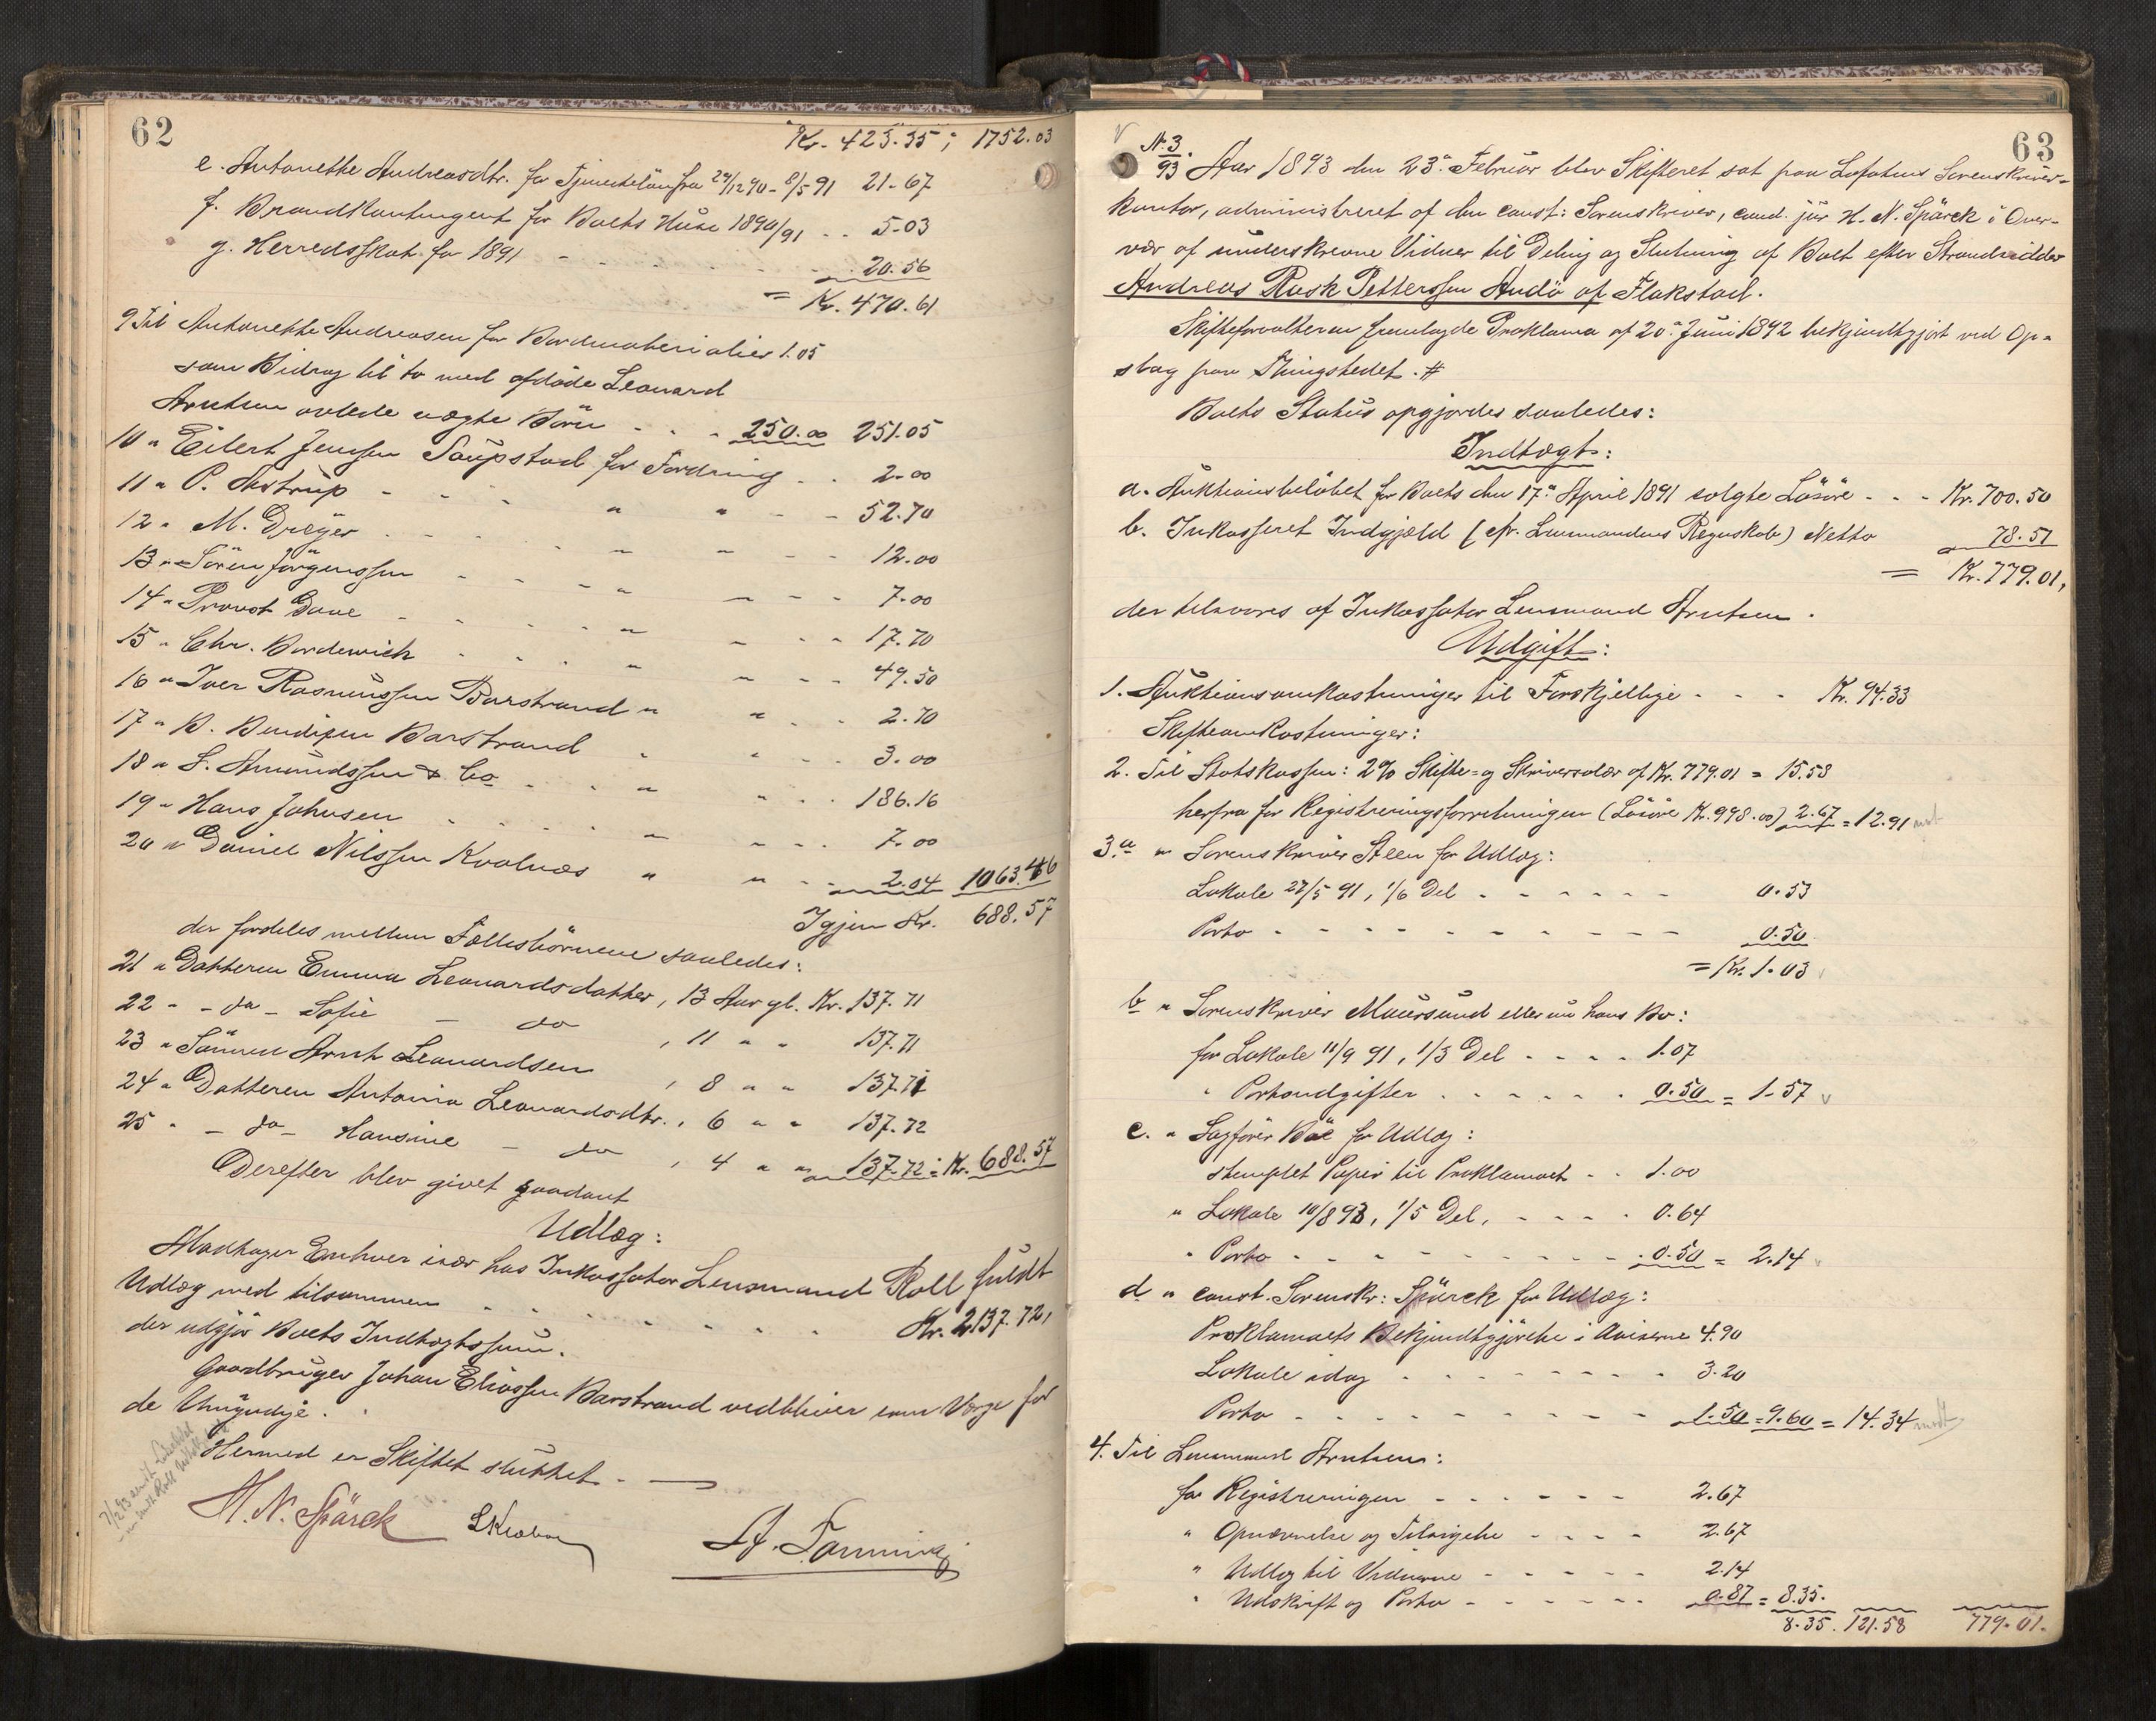 62
Kr. 423.35; 1752.03
e. Antonette Andreasdtr. for Tjenesteløn fra 29/12 90 - 8/5 91 21-67
f. Brandkontingent for Boets Huse 1890/91 - - 5-03
g. Herredsskat for 1891 - - - - - - - 20.56
= Kr. 470.61
9 Til Antonette Andreasen for Bordmaterialier 1.05
som Bidrag til to med afdøde Leonard
Arntsen avlede uægte Børn - - - 250.00 251.05
10 " Eilert Jensen Saupstad for Fordring - - 2-00
11 " P. Astrup - - - " " - - 52.70
12 " M. Dreyer - - - - " - - - 12.00
13 " Sören Jörgenssen - - - " - - - 7-00
14 " Provst Dave - - - - " - - - 17.70
15 " Chr. Bordewich - - - " - - - 49.50
16 " Iver Rasmussen Barstrand " " - - 2.70
17 " B. Bendixen Barstrand " " - - 3.00
18 " L. Amundssen & Co - - " " - - 186.16
19 " Hans Johnsen - - - - " - - - 7.00
20 " Daniel Nilssen Kvalnes " " - - 2.04 1063.46
Igjen Kr. 688.57
der fordeles mellem Fællesbörnene saaledes:
21 " Datteren Emma Leonardsdatter, 13 Aar gl. Kr. 137.71
22 - - do - Sofie - do , 11 " " 137.71
23 " Sönnen Arnt Leonardsen , 8 " " 137.71
24 " Datteren Antonia Leonardsdtr., 6 " " 137.72
25 " - do - Hansine - do , 4 " " 137.72 = Kr. 688.57
Derefter blev givet saadant
Udlæg:
Modtager Enhver især hos Inkassator Lensmand Roll fuldt
Udlæg med tilsammen - - - - - - - Kr. 2137.72,
der udgjør Boets Indtægtssum.
Gaardbruger Johan Eliassen Barstrand vedbliver som Værge for
de Umyndige.
Hermed er Skiftet sluttet. -
H. N. Spärck
63
N. 3/93. Aar 1893 den 23de Februar blev Skifteret sat paa Lofotens Sorenskriver-
kontor, administreret af den const: Sorenskriver, cand. jur H. N. Spärck i Over-
vær af underskrevne Vidner til Deling og Slutning af Boet efter Strandsidder
Andreas Rask Petterssen Andö af Flakstad.
Skifteforvalteren fremlagde Proklama af 20de Juni 1892 bekjendtgjort ved Op-
slag paa Thingstedet. #
Boets Status opgjordes saaledes:
Indtægt:
a. Auktionsbelöbet for Boets den 17de April 1891 solgte Lösöre - - - Kr. 700.50
b. Inkasseret Indgjæld (cfr. Lensmandens Regnskab) Netto 78.51
= Kr. 779.01,
der tilsvares af Inkassator Lensmand Arntsen.
Udgift:
1. Auktionsomkostninger til Forskjellige - - - Kr. 94.33
Skifteomkostninger:
2. Til Statskassen: 2% Skifte- og Skriversalær af Kr. 779.01 = 15.58
herfra for Registreringsforretningen (Lösöre Kr. 998.00) 2.67 = 12.91
3. a " Sorenskriver Steen for Udlæg:
Lokale 27/5 91, 1/6 Del - - - - - - 0.53
Porto - - - - - - - - - - 0.50
= Kr. 1.03
b " Sorenskriver Maursund eller nu hans Bo:
for Lokale 11/9 91, 1/3 Del - - - - 1.07
" Portoudgifter - - - - - - 0.50 = 1-57
c. " Sagförer Böe for Udlæg:
stemplet Papir til Proklamaet - - 1.00
" Lokale 10/8 93, 1/5 Del, - - - - 0.64
" Porto - - - - - - - - - - 0.50 = 2.14
d " const. Sorenskr: Spärck for Udlæg:
Proklamaets Bekjendtgjörelse i Aviserne 4.90
Lokale idag - - - - - - - - 3.20
Porto - - - - - - - - - 1.50 = 9.60 = 14.34
4. Til Lensmand Arntsen:
for Registreringen - - - - - - 2.67
" Opnævnelse og Tilsigelse - - - - 2.67
" Udlæg til Vidnerne - - - - - 2.14
" Udskrift og Porto - - - - - - 0.87 = 8.35.
8.35. 121.58 779.01.